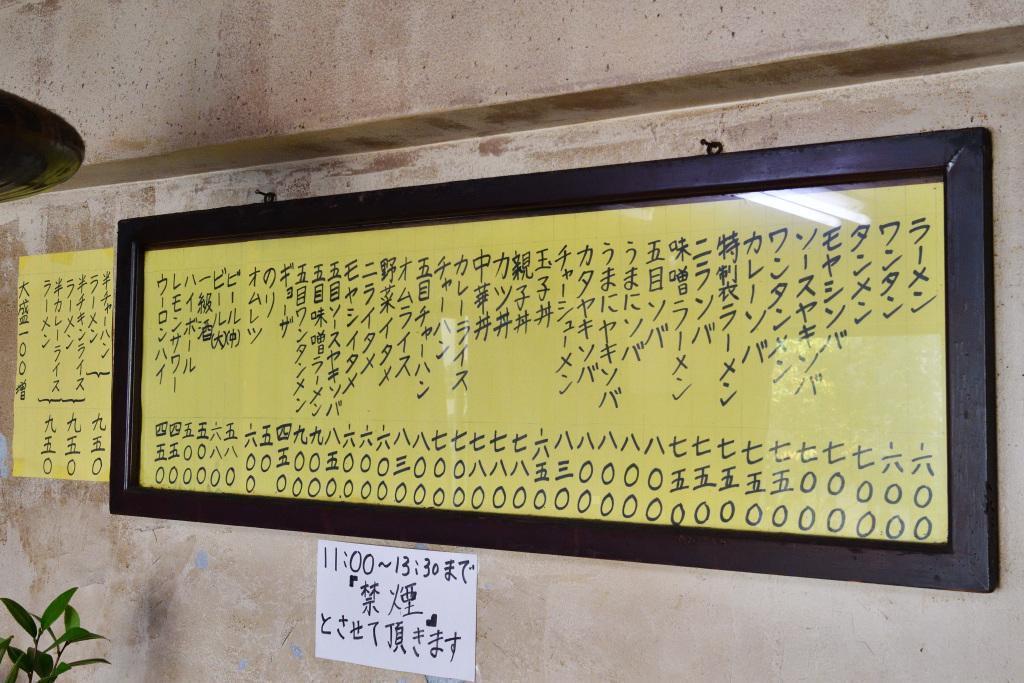 ラーメン 六〇〇
ワンタン 六〇〇
タンメン 七〇〇
モヤシソバ 七〇〇
ソースヤキソバ 七〇〇
ワンタンメン 七五〇
カレーソバ 七五〇
特製ラーメン 七五〇
ニラソバ 七五〇
味噌ラーメン 七五〇
五目ソバ 八〇〇
うまにソバ 八〇〇
うまにヤキソバ 八〇〇
カタヤキソバ 八〇〇
チャーシューメン 八三〇
玉子丼 六五〇
親子丼 七八〇
カツ丼 七八〇
中華丼 七八〇
カレーライス 七〇〇
チャーハン 七〇〇
五目チャーハン 八〇〇
オムライス 八三〇
野菜イタメ 六〇〇
ニライタメ 六〇〇
モヤシイタメ 六〇〇
五目ソースヤキソバ 八五〇
五目味噌ラーメン 九〇〇
五目ワンタンメン 九〇〇
ギョーザ 四五〇
のり 五〇
オムレツ 六〇〇
ビール(中) 五八〇
ビール(大) 六八〇
一級酒 五〇〇
ハイボール 五〇〇
レモンサワー 四五〇
ウーロンハイ 四五〇
半チャーハン
ラーメン 九五〇
半チキンライス
ラーメン 九五〇
半カレーライス
ラーメン 九五〇
大盛一〇〇増
11:00~13:30まで
『禁煙』
とさせて頂きます